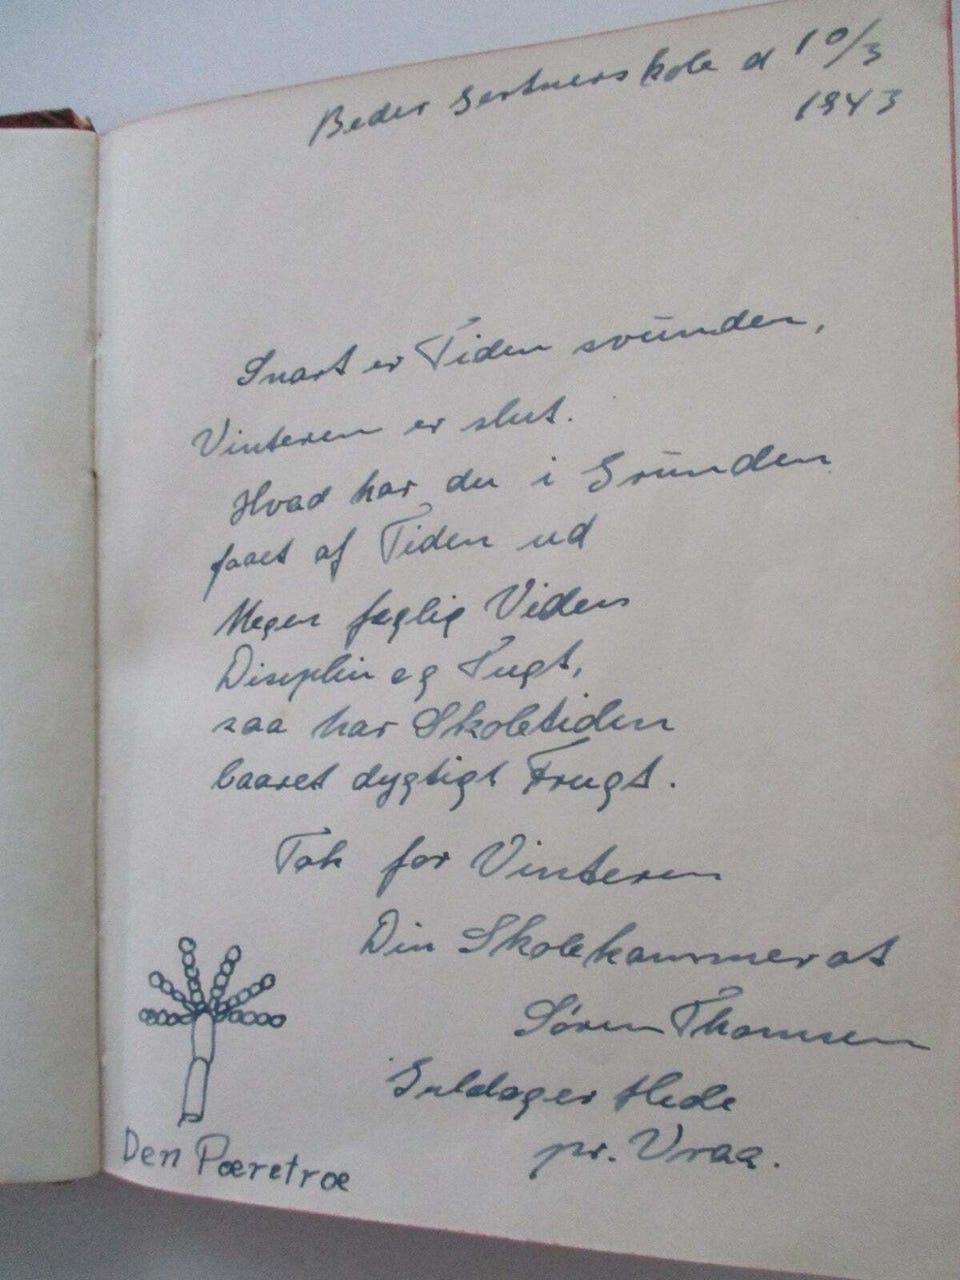 Beder Gartnerskole d 10/3
1943
Snart er Tiden svunden,
Vinteren er slut.
Hvad har du i Grunden
faaet af Tiden ud
Megen faglig Viden
Disciplin og Tugt,
saa har Skoletiden
baaret dygtigt Frugt.
Tak for Vinteren
Din Skolekammerat
Søren Thomsen
Guldager Hede
pr. Vraa.
Den Pæretræ